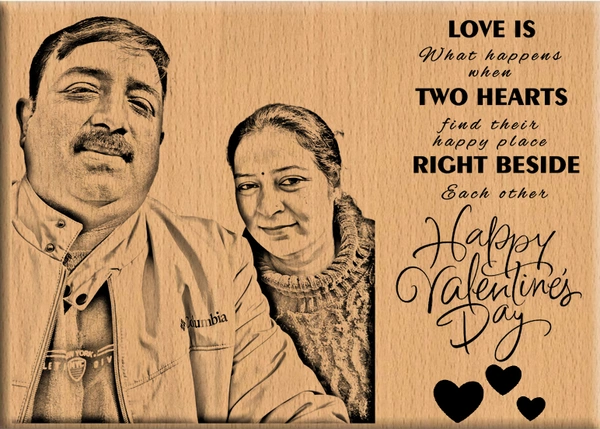 LOVE IS
What happens
when
TWO HEARTS
find their
happy place
RIGHT BESIDE
Each other
Happy
Valentine's
Day
Columbia
NEW YORK